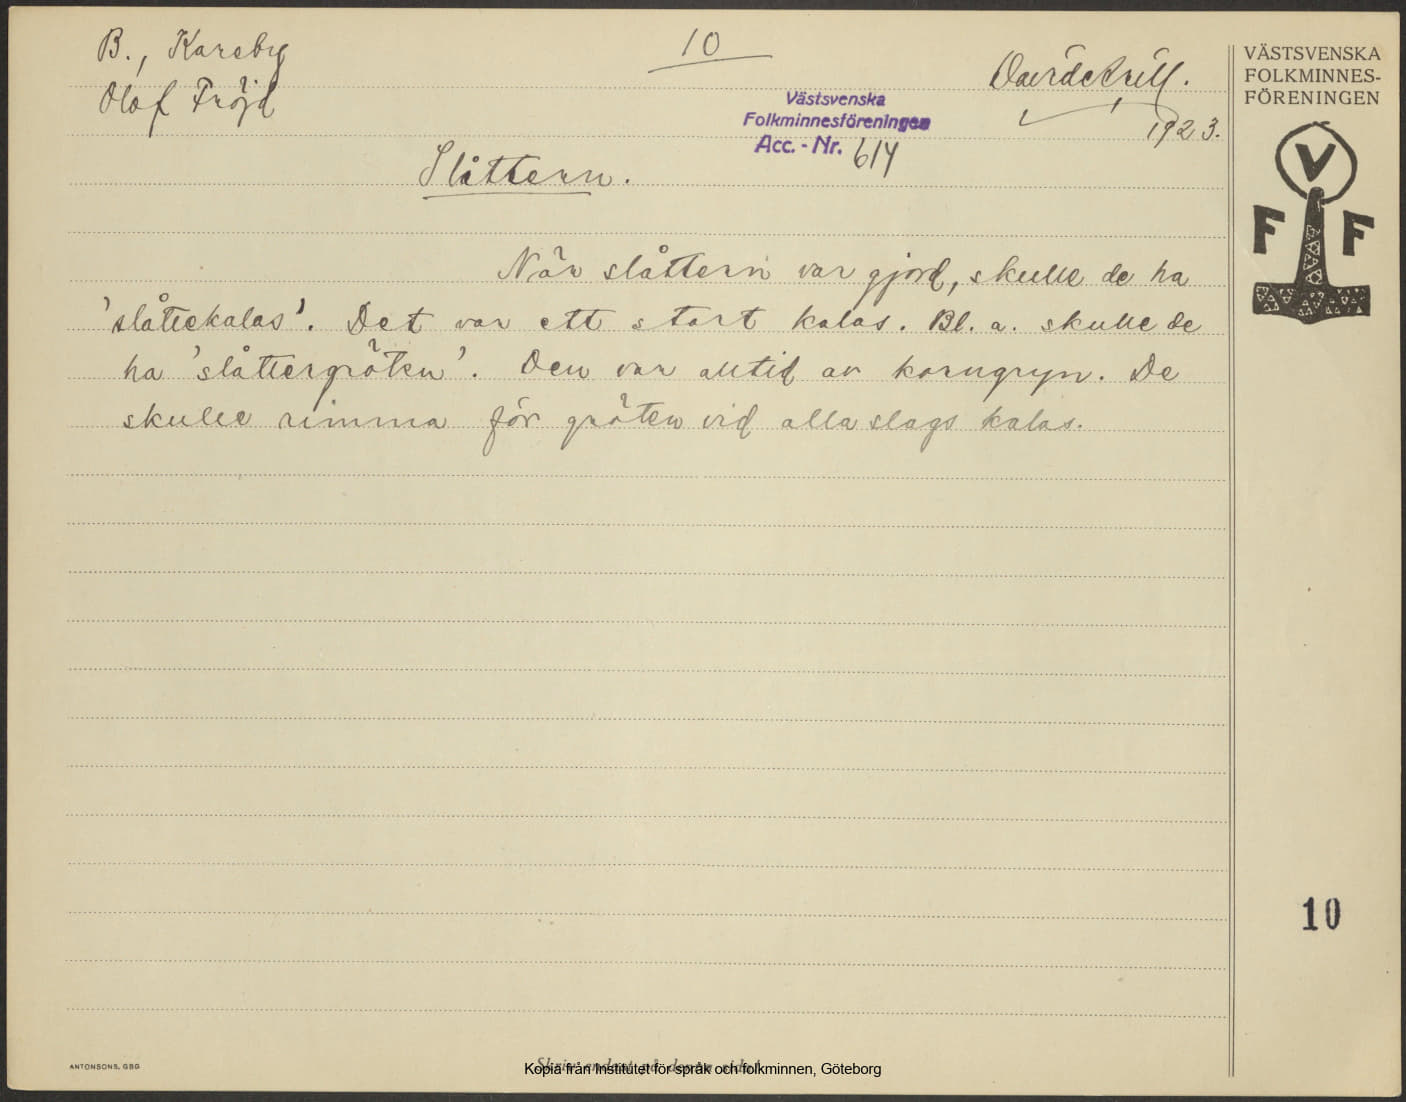 B., Kareby
Olof Fröjd
10
David Arill.
1923.
Västsvenska
Folkminnesföreningen
Acc. - Nr. 614
VÄSTSVENSKA
FOLKMINNES-
FÖRENINGEN
V
F F
Slåttern.
När slåttern var gjord, skulle de ha
'slåttekalas'. Det var ett stort kalas. Bl. a. skulle de
ha 'slåttergröten'. Den var alltid av korngryn. De
skulle rimma för gröten vid alla slags kalas.
10
ANTONSONS, GBG
Skriv endast på denna sida!
Kopia från Institutet för språk och folkminnen, Göteborg